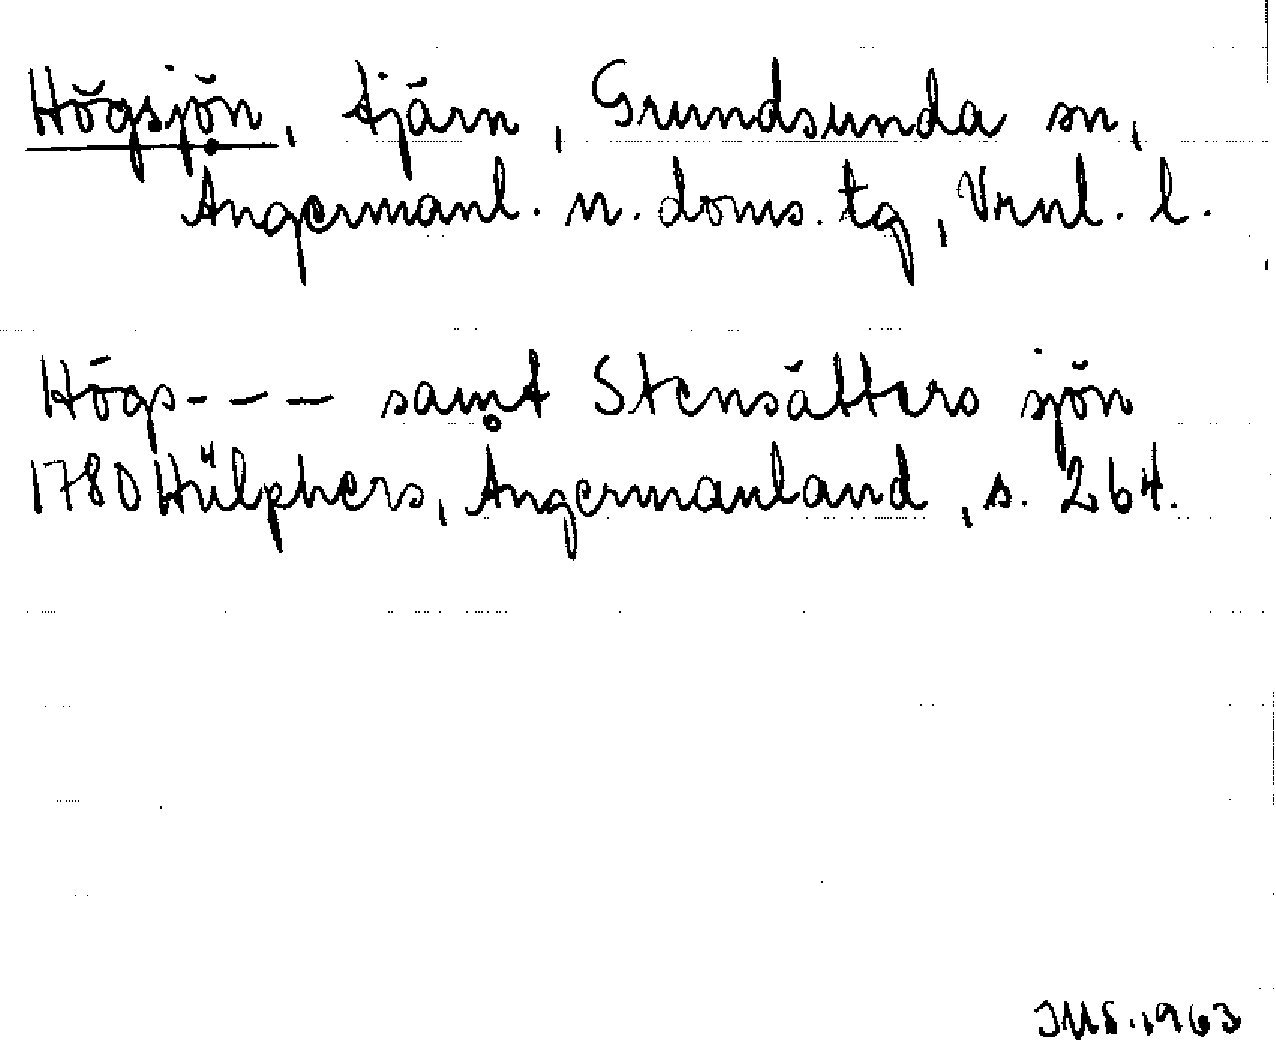 Högsjön, tjärn, Grundsunda sn,
Ångermanl. n. doms. tg, Vrnl. l.
Högs- - - - samt Stensätters sjön
1780 Hülphers, Ångermanland, s. 264.
JMS. 1963